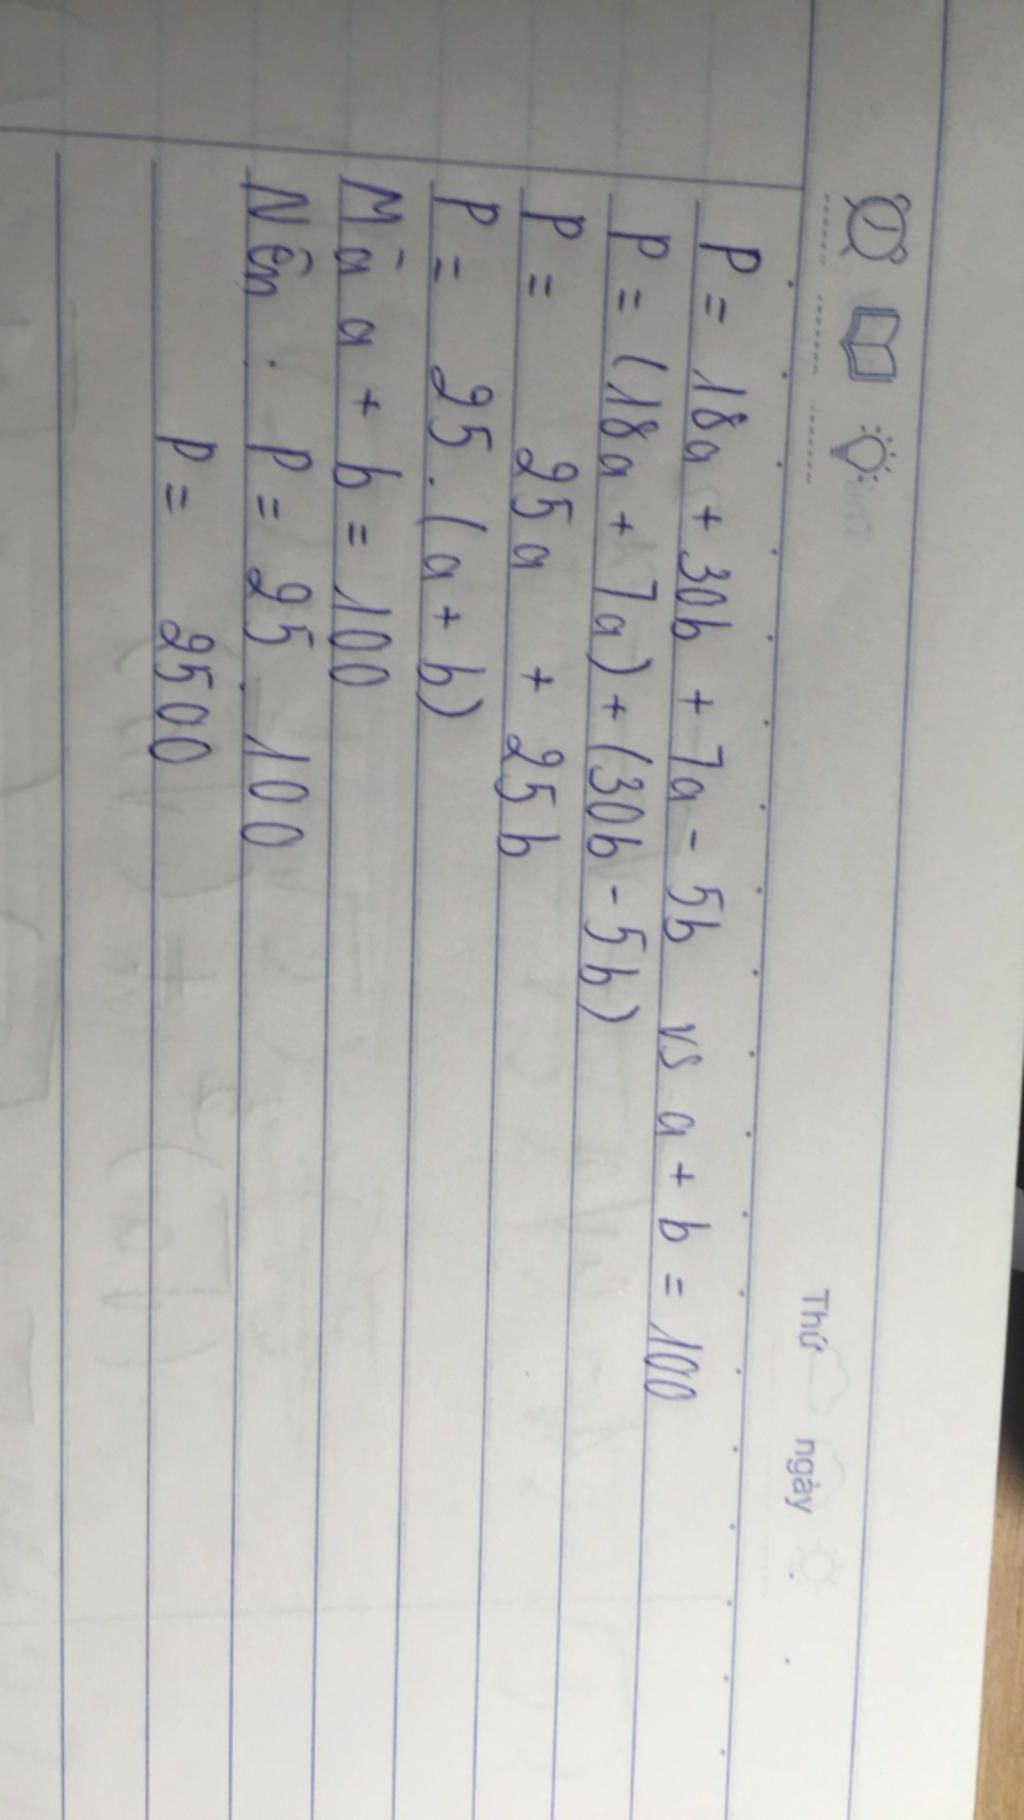 Thứ ngày
P = 18a + 30b + 7a - 5b vs a + b = 100
P = (18a + 7a) + (30b - 5b)
P = 25a + 25b
P = 25 . (a + b)
Mà a + b = 100
Nên . P = 25 . 100
P = 2500